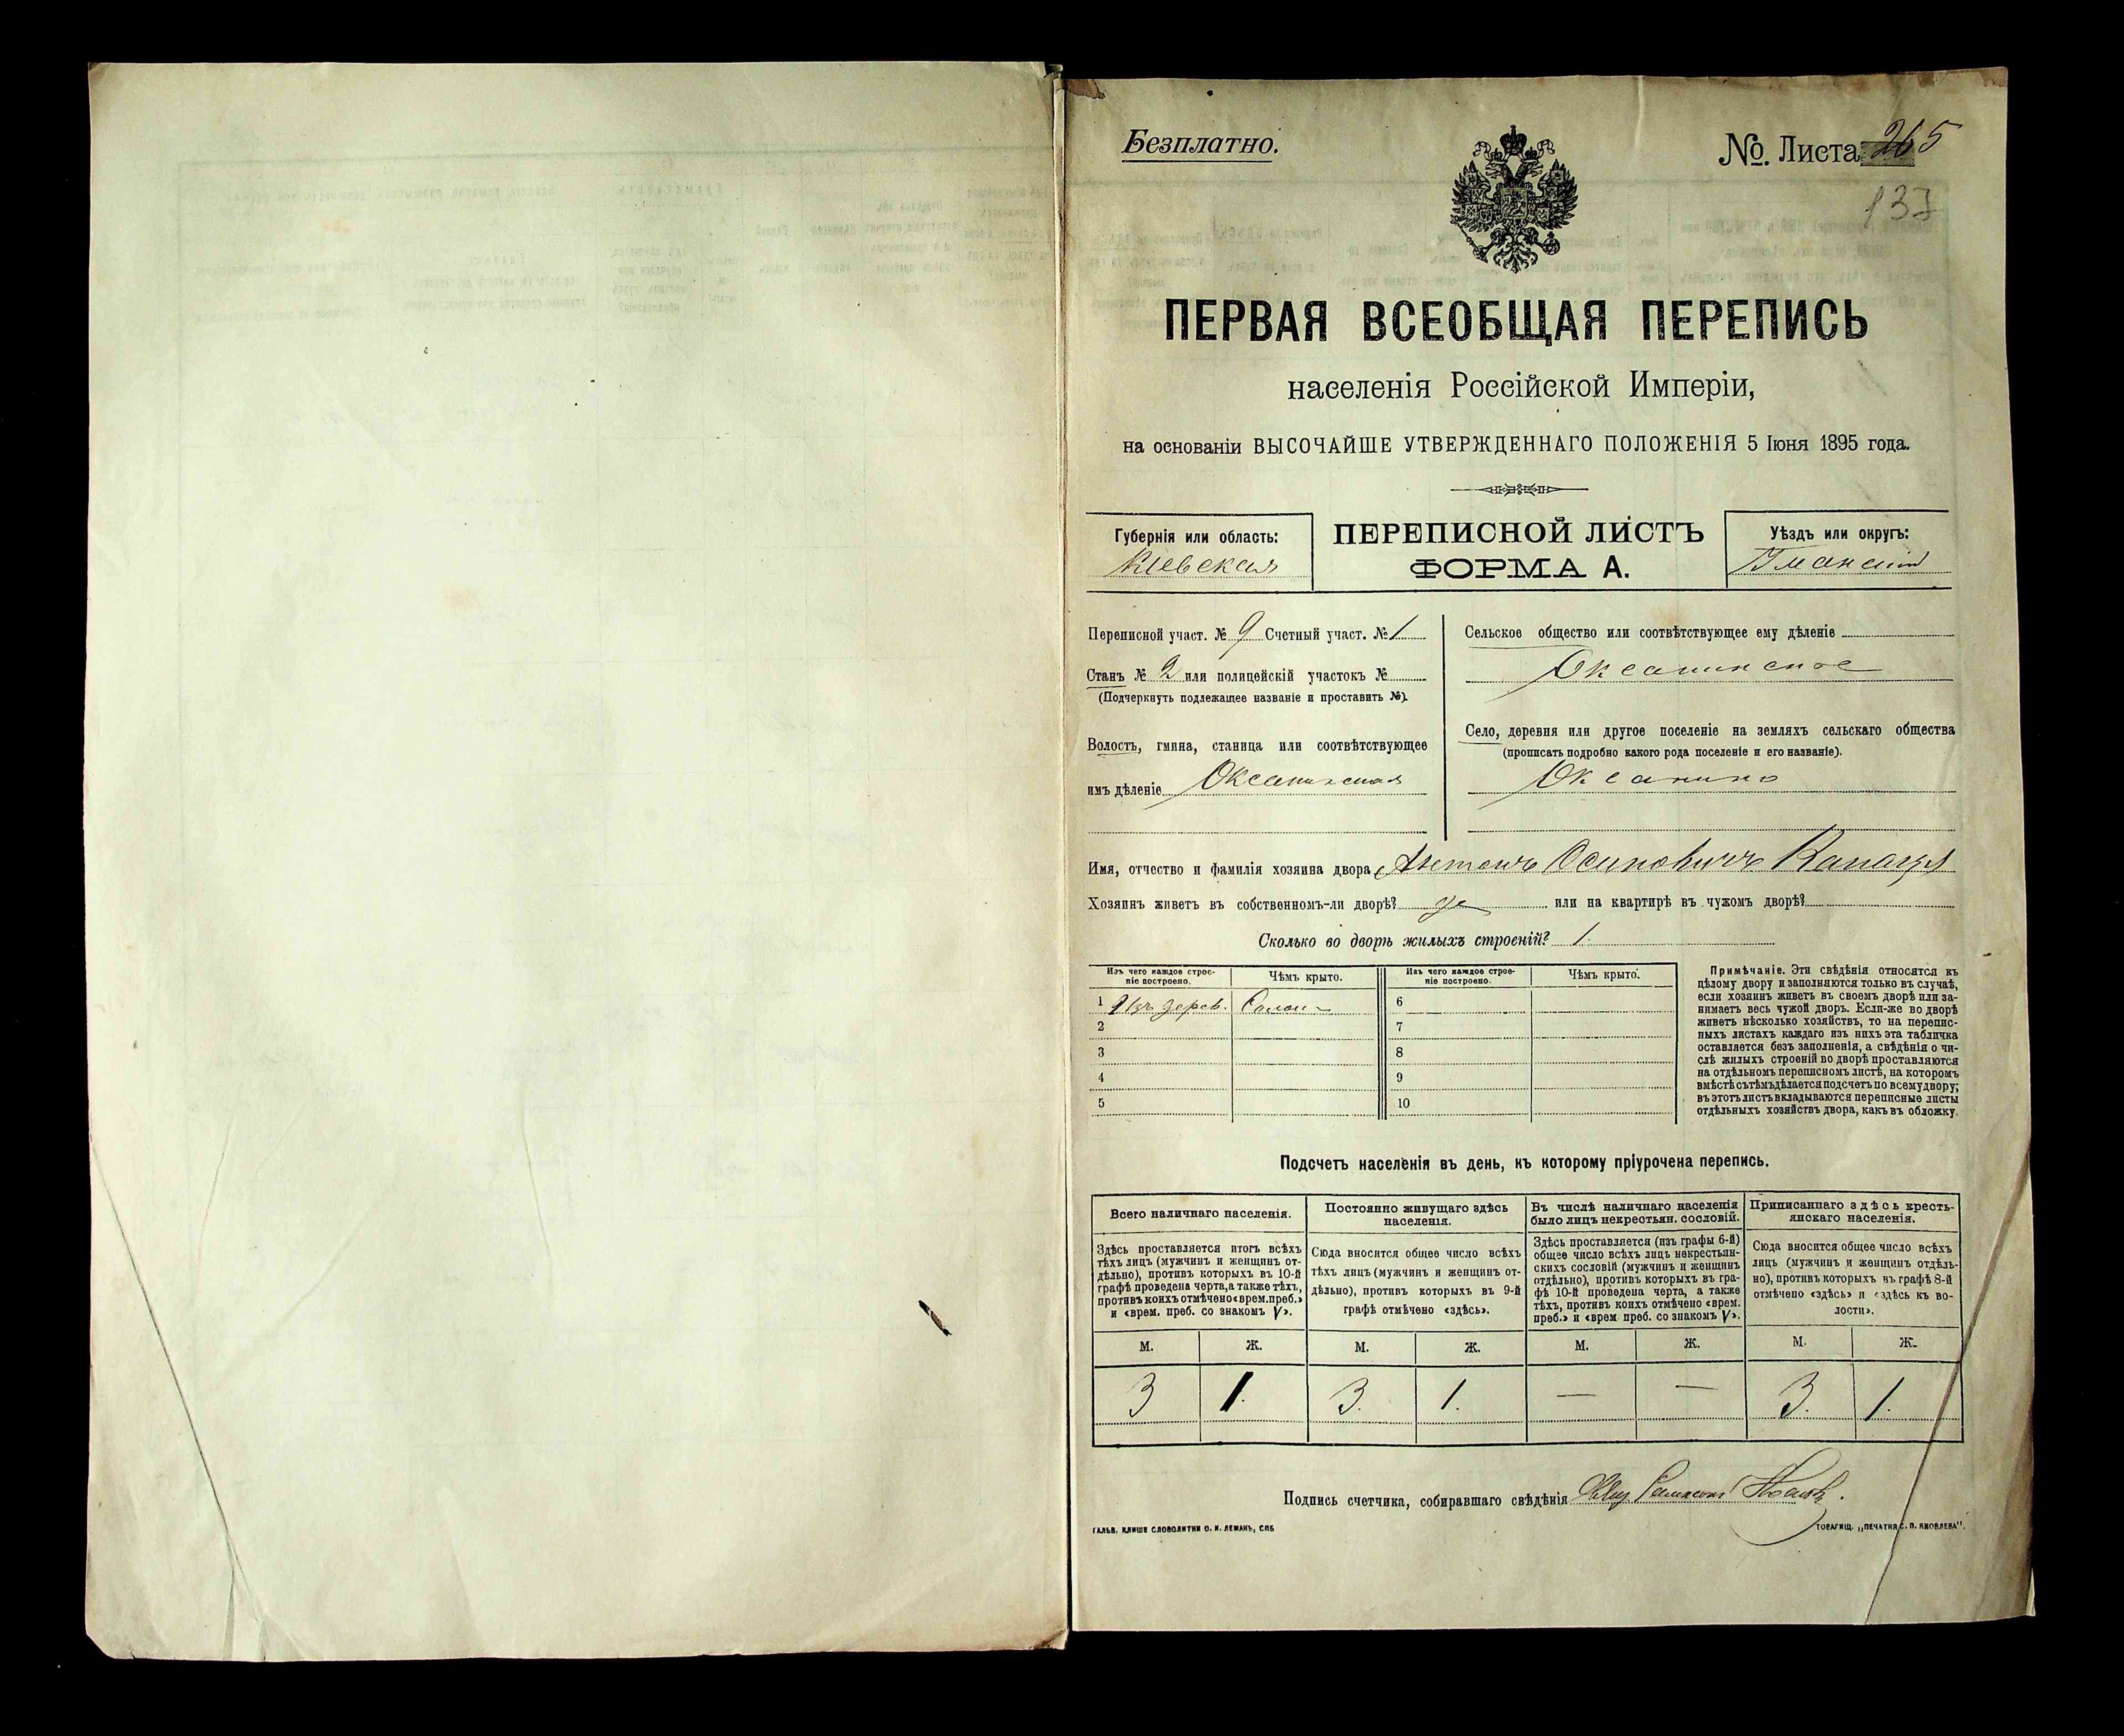 Безплатно.
№. Листа 265
137
ПЕРВАЯ ВСЕОБЩАЯ ПЕРЕПИСЬ
населенія Россійской Имперіи,
на основаніи ВЫСОЧАЙШЕ УТВЕРЖДЕННАГО ПОЛОЖЕНІЯ 5 Іюня 1895 года.
Губернія или область:
Кіевская
ПЕРЕПИСНОЙ ЛИСТЪ
ФОРМА А.
Уѣздъ или округъ:
Уманскій
Переписной участ. № 9 Счетный участ. № 1
Станъ № 2 или полицейскій участокъ №
(Подчеркнуть подлежащее названіе и проставить №).
Волость, гмина, станица или соотвѣтствующее
имъ дѣленіе Оксанинская
Сельское общество или соотвѣтствующее ему дѣленіе
Оксанинское
Село, деревня или другое поселеніе на земляхъ сельскаго общества
(прописать подробно какого рода поселеніе и его названіе).
Оксанино
Имя, отчество и фамилія хозяина двора Антонъ Осиповичъ
Хозяинъ живетъ въ собственномъ-ли дворѣ? да или на квартирѣ въ чужомъ дворѣ?
Сколько во дворѣ жилыхъ строеній? 1.
Изъ чего каждое строе-
ніе построено.
Чѣмъ крыто.
Изъ чего каждое строе-
ніе построено.
Чѣмъ крыто.
1 Изъ дерев. Солом
2
3
4
5
6
7
8
9
10
Примѣчаніе. Эти свѣдѣнія относятся къ
цѣлому двору и заполняются только въ случаѣ,
если хозяинъ живетъ въ своемъ дворѣ или за-
нимаетъ весь чужой дворъ. Если-же во дворѣ
живетъ нѣсколько хозяйствъ, то на перепис-
ныхъ листахъ каждаго изъ нихъ эта табличка
оставляется безъ заполненія, а свѣдѣнія о чи-
слѣ жилыхъ строеній во дворѣ проставляются
на отдѣльномъ переписномъ листѣ, на которомъ
вмѣстѣ съ тѣмъ дѣлается подсчетъ по всему двору;
въ этотъ листъ вкладываются переписные листы
отдѣльныхъ хозяйствъ двора, какъ въ обложку.
Подсчетъ населенія въ день, къ которому пріурочена перепись.
Всего наличнаго населенія.
Здѣсь проставляется итогъ всѣхъ
тѣхъ лицъ (мужчинъ и женщинъ от-
дѣльно), противъ которыхъ въ 10-й
графѣ проведена черта, а также тѣхъ,
противъ коихъ отмѣчено «врем. преб.»
и «врем. преб. со знакомъ V».
Постоянно живущаго здѣсь
населенія.
Сюда вносится общее число всѣхъ
тѣхъ лицъ (мужчинъ и женщинъ от-
дѣльно), противъ которыхъ въ 9-й
графѣ отмѣчено «здѣсь».
Въ числѣ наличнаго населенія
было лицъ некрестьян. сословій.
Здѣсь проставляется (изъ графы 6-й)
общее число всѣхъ лицъ некрестьян-
скихъ сословій (мужчинъ и женщинъ
отдѣльно), противъ которыхъ въ гра-
фѣ 10-й проведена черта, а также
тѣхъ, противъ коихъ отмѣчено «врем.
преб.» и «врем преб. со знакомъ V».
Приписаннаго здѣсь кресть-
янскаго населенія.
Сюда вносится общее число всѣхъ
лицъ (мужчинъ и женщинъ отдѣль-
но), противъ которыхъ въ графѣ 8-й
отмѣчено «здѣсь» и «здѣсь къ во-
лости».
М. Ж. М. Ж. М. Ж. М. Ж.
3 1. 3. 1. — — 3. 1.
Подпись счетчика, собиравшаго свѣдѣнія
ГАЛЬВ. КЛИШЕ СЛОВОЛИТНИ О. И. ЛЕМАНЪ, СПБ
ТОВАРИЩ. „ПЕЧАТНЯ С. П. ЯКОВЛЕВА".